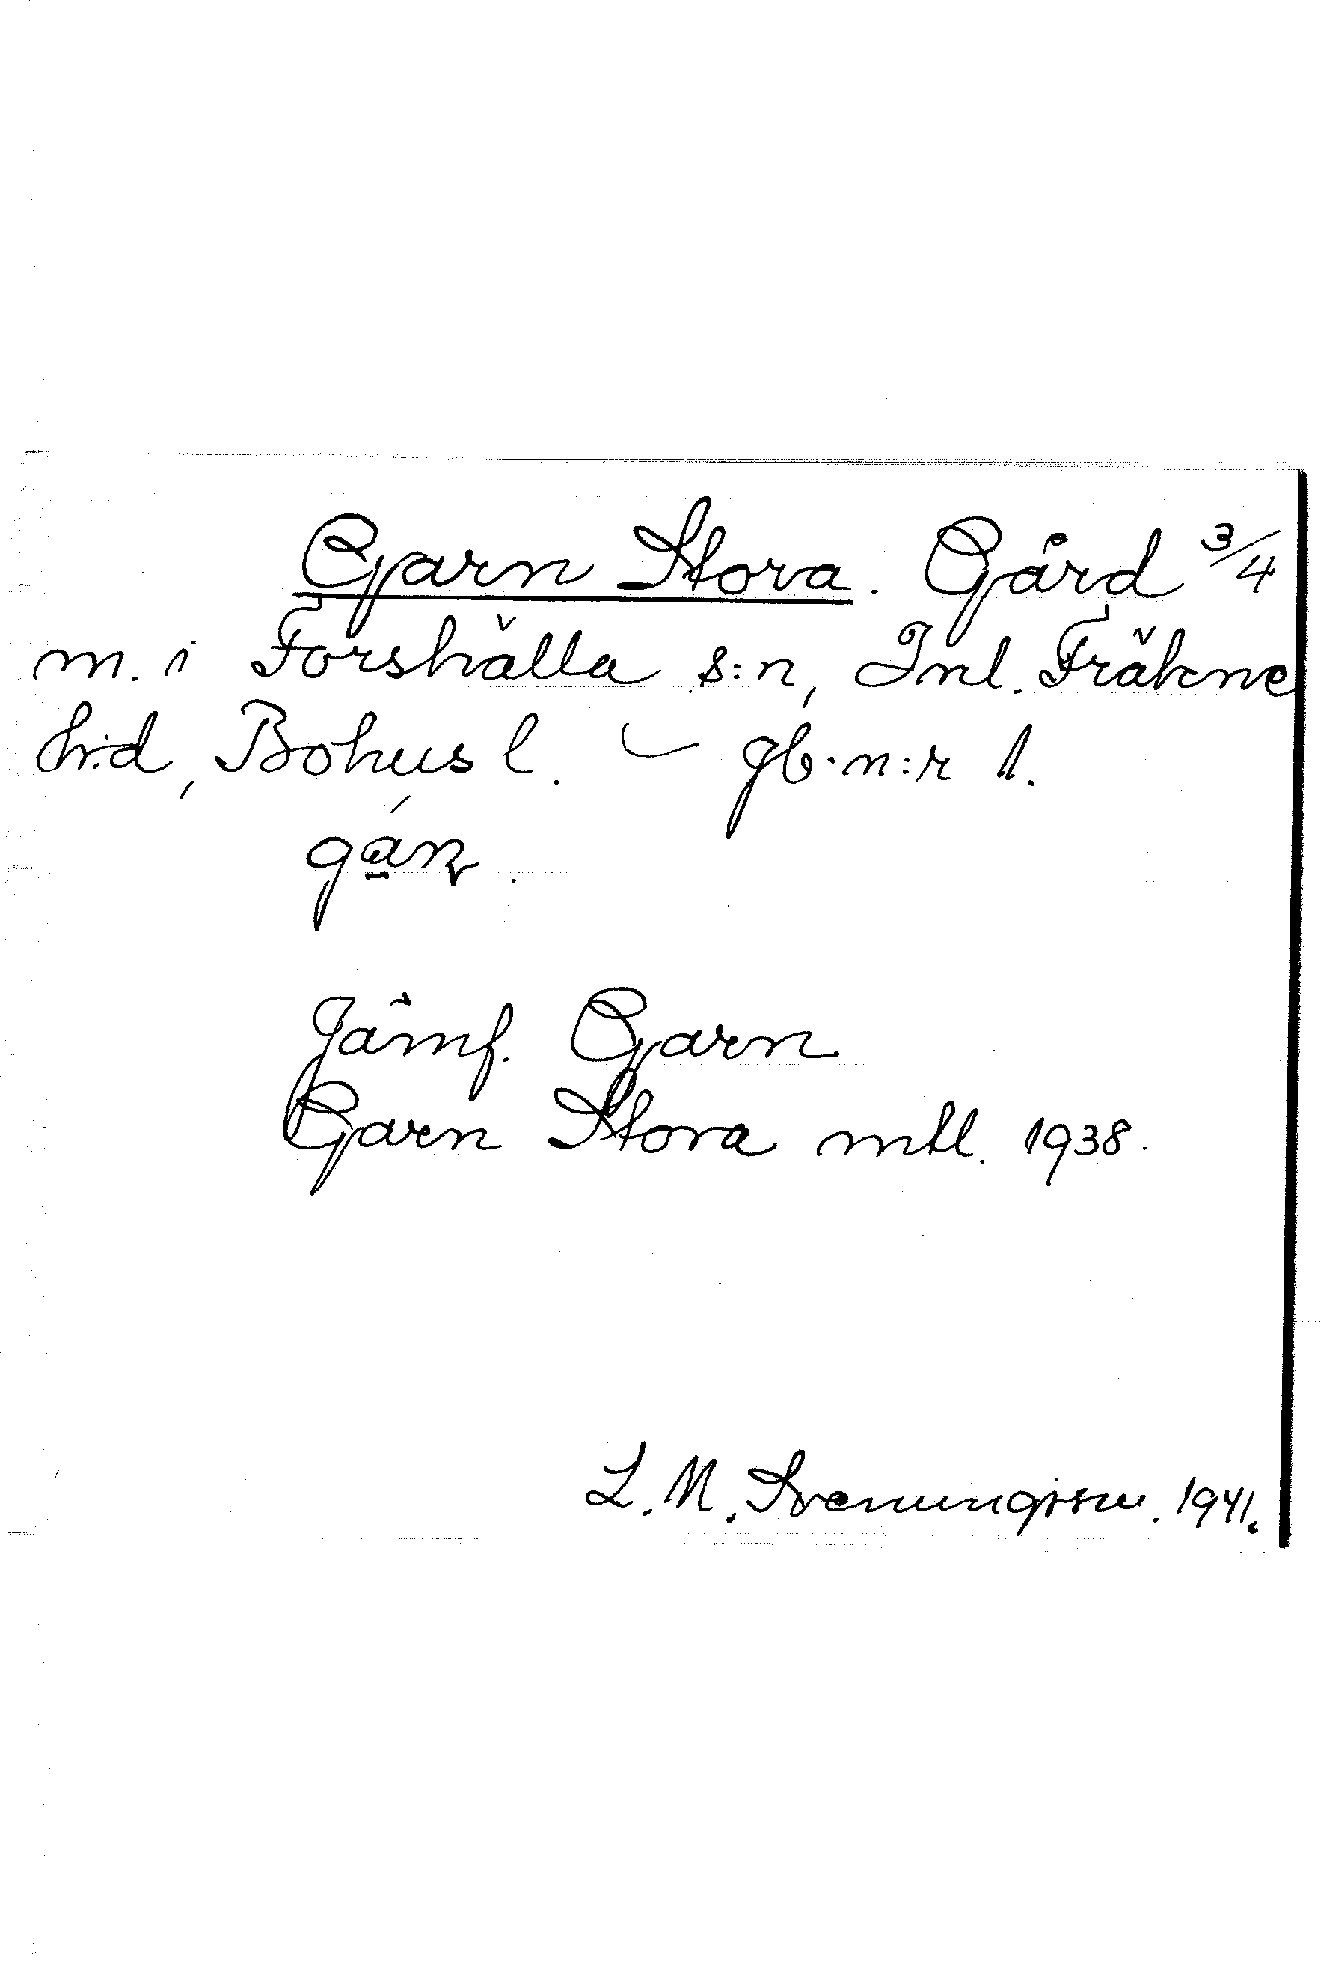 Garn Stora. Gård 3/4
m. i Forshälla s:n, Inl. Fräkne
h:d, Bohus l. — gb.n:r 1.
gán.
Jämf. Garn
Garn Stora mtl. 1938.
L. M. Svenungsson. 1941.